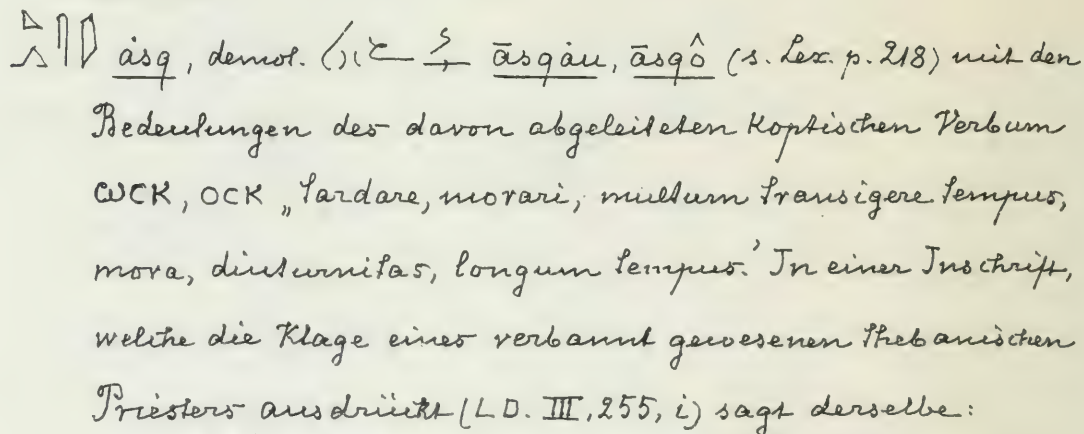 𓈎𓂻𓋴𓇋 àsq, demot. āsqàu, āsqô (s. Lex. p. 218) mit den
Bedeutungen des davon abgeleiteten Koptischen Verbum
ⲱⲥⲕ, ⲟⲥⲕ „tardare, morari, multum transigere tempus,
mora, diuturnitas, longum tempus.’ In einer Inschrift,
welche die Klage eines verbannt gewesenen thebanischen
Priesters ausdrückt (LD. III, 255, i) sagt derselbe: